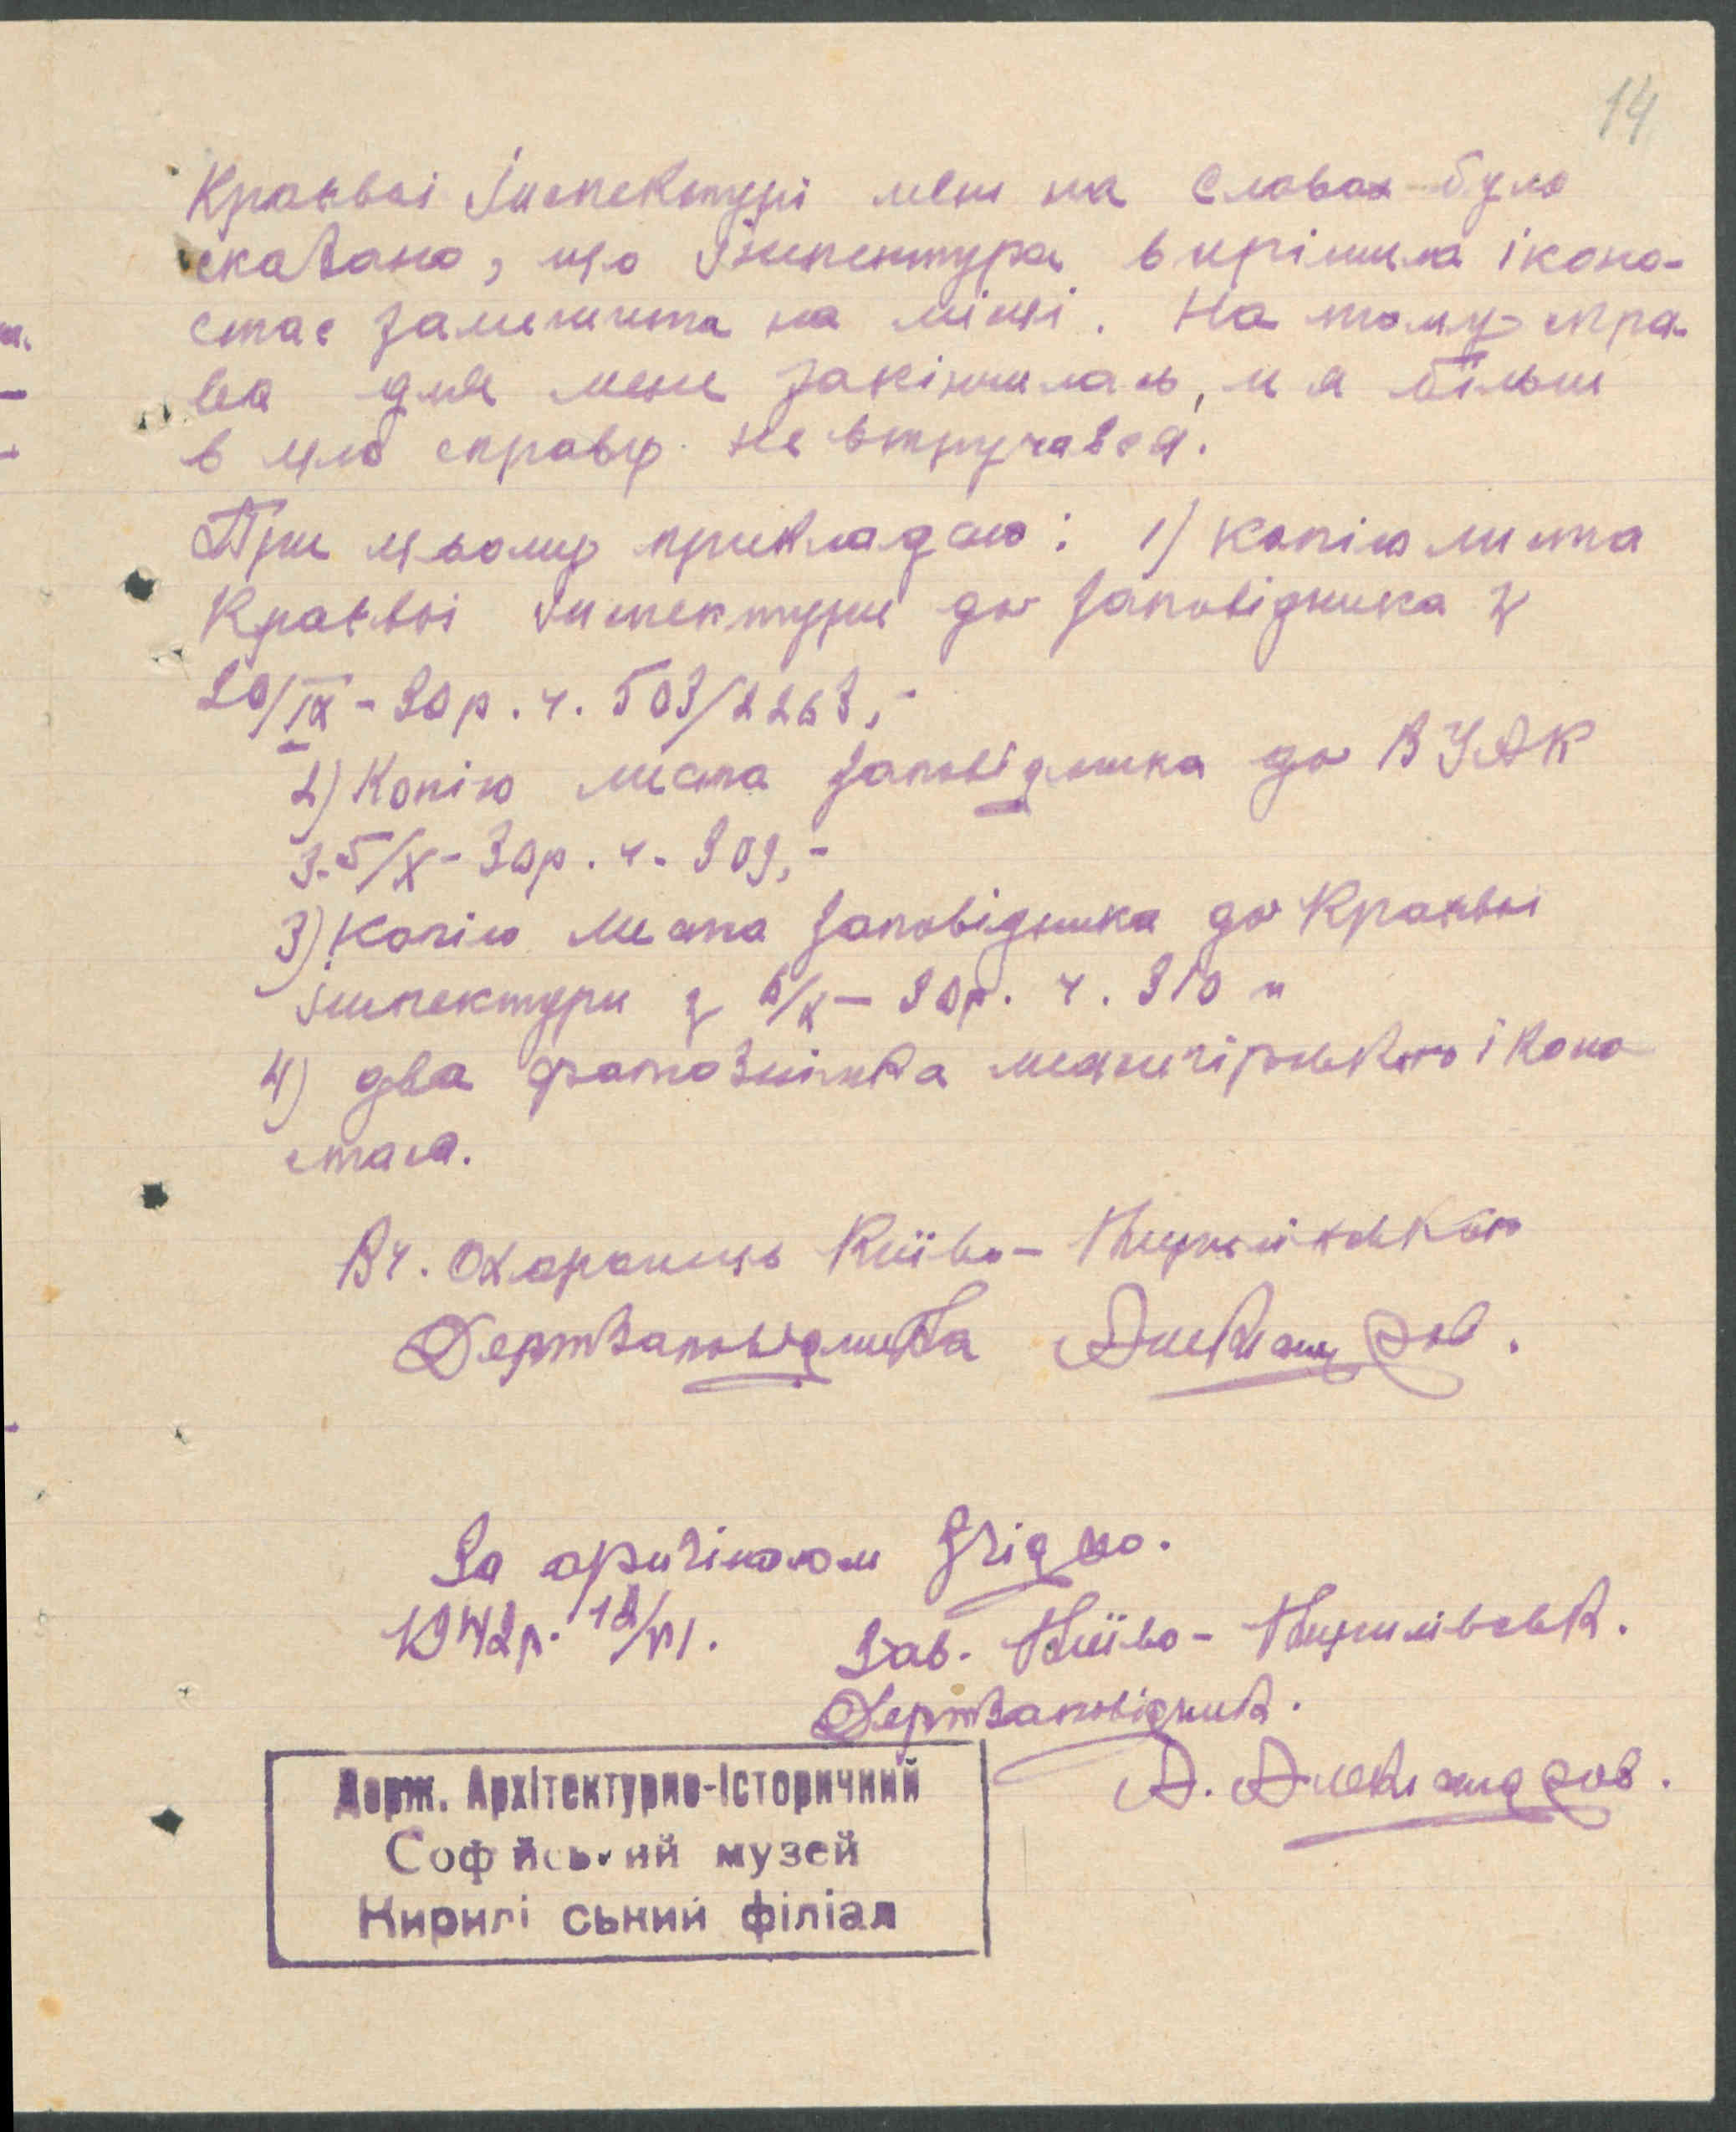 14
Краєвоі Інспектурі мені на словах було
сказано, що Інспектура вирішила іконо-
стас залишити на місці. На тому спра-
ва для мене закінчилась, и я більш
в цю справу не втручався.
При цьому прикладаю: 1) копію листа
Краєвоі Інспектури до Заповідника з
20/IX - 30 р. ч. 503/2263,-
2) Копію листа Заповідника до ВУАК
з 5/X - 30 р. ч. 309,-
3) Копію листа Заповідника до Краєвоі
Інспектури з 6/X - 30 р. ч. 310 и
4) два фотознімка межигірського іконо
стаса.
Вч. Охоронець Київо- Кирилівського
ДержЗаповідника Александров.
За оригіналом згідно.
1942 р. 12/VI.
Зав. Київо- Кирилівськ.
ДержЗаповідник.
А. Александров.
Держ. Архітектурно-Історичний
Соф йський музей
Кирилі ський філіал